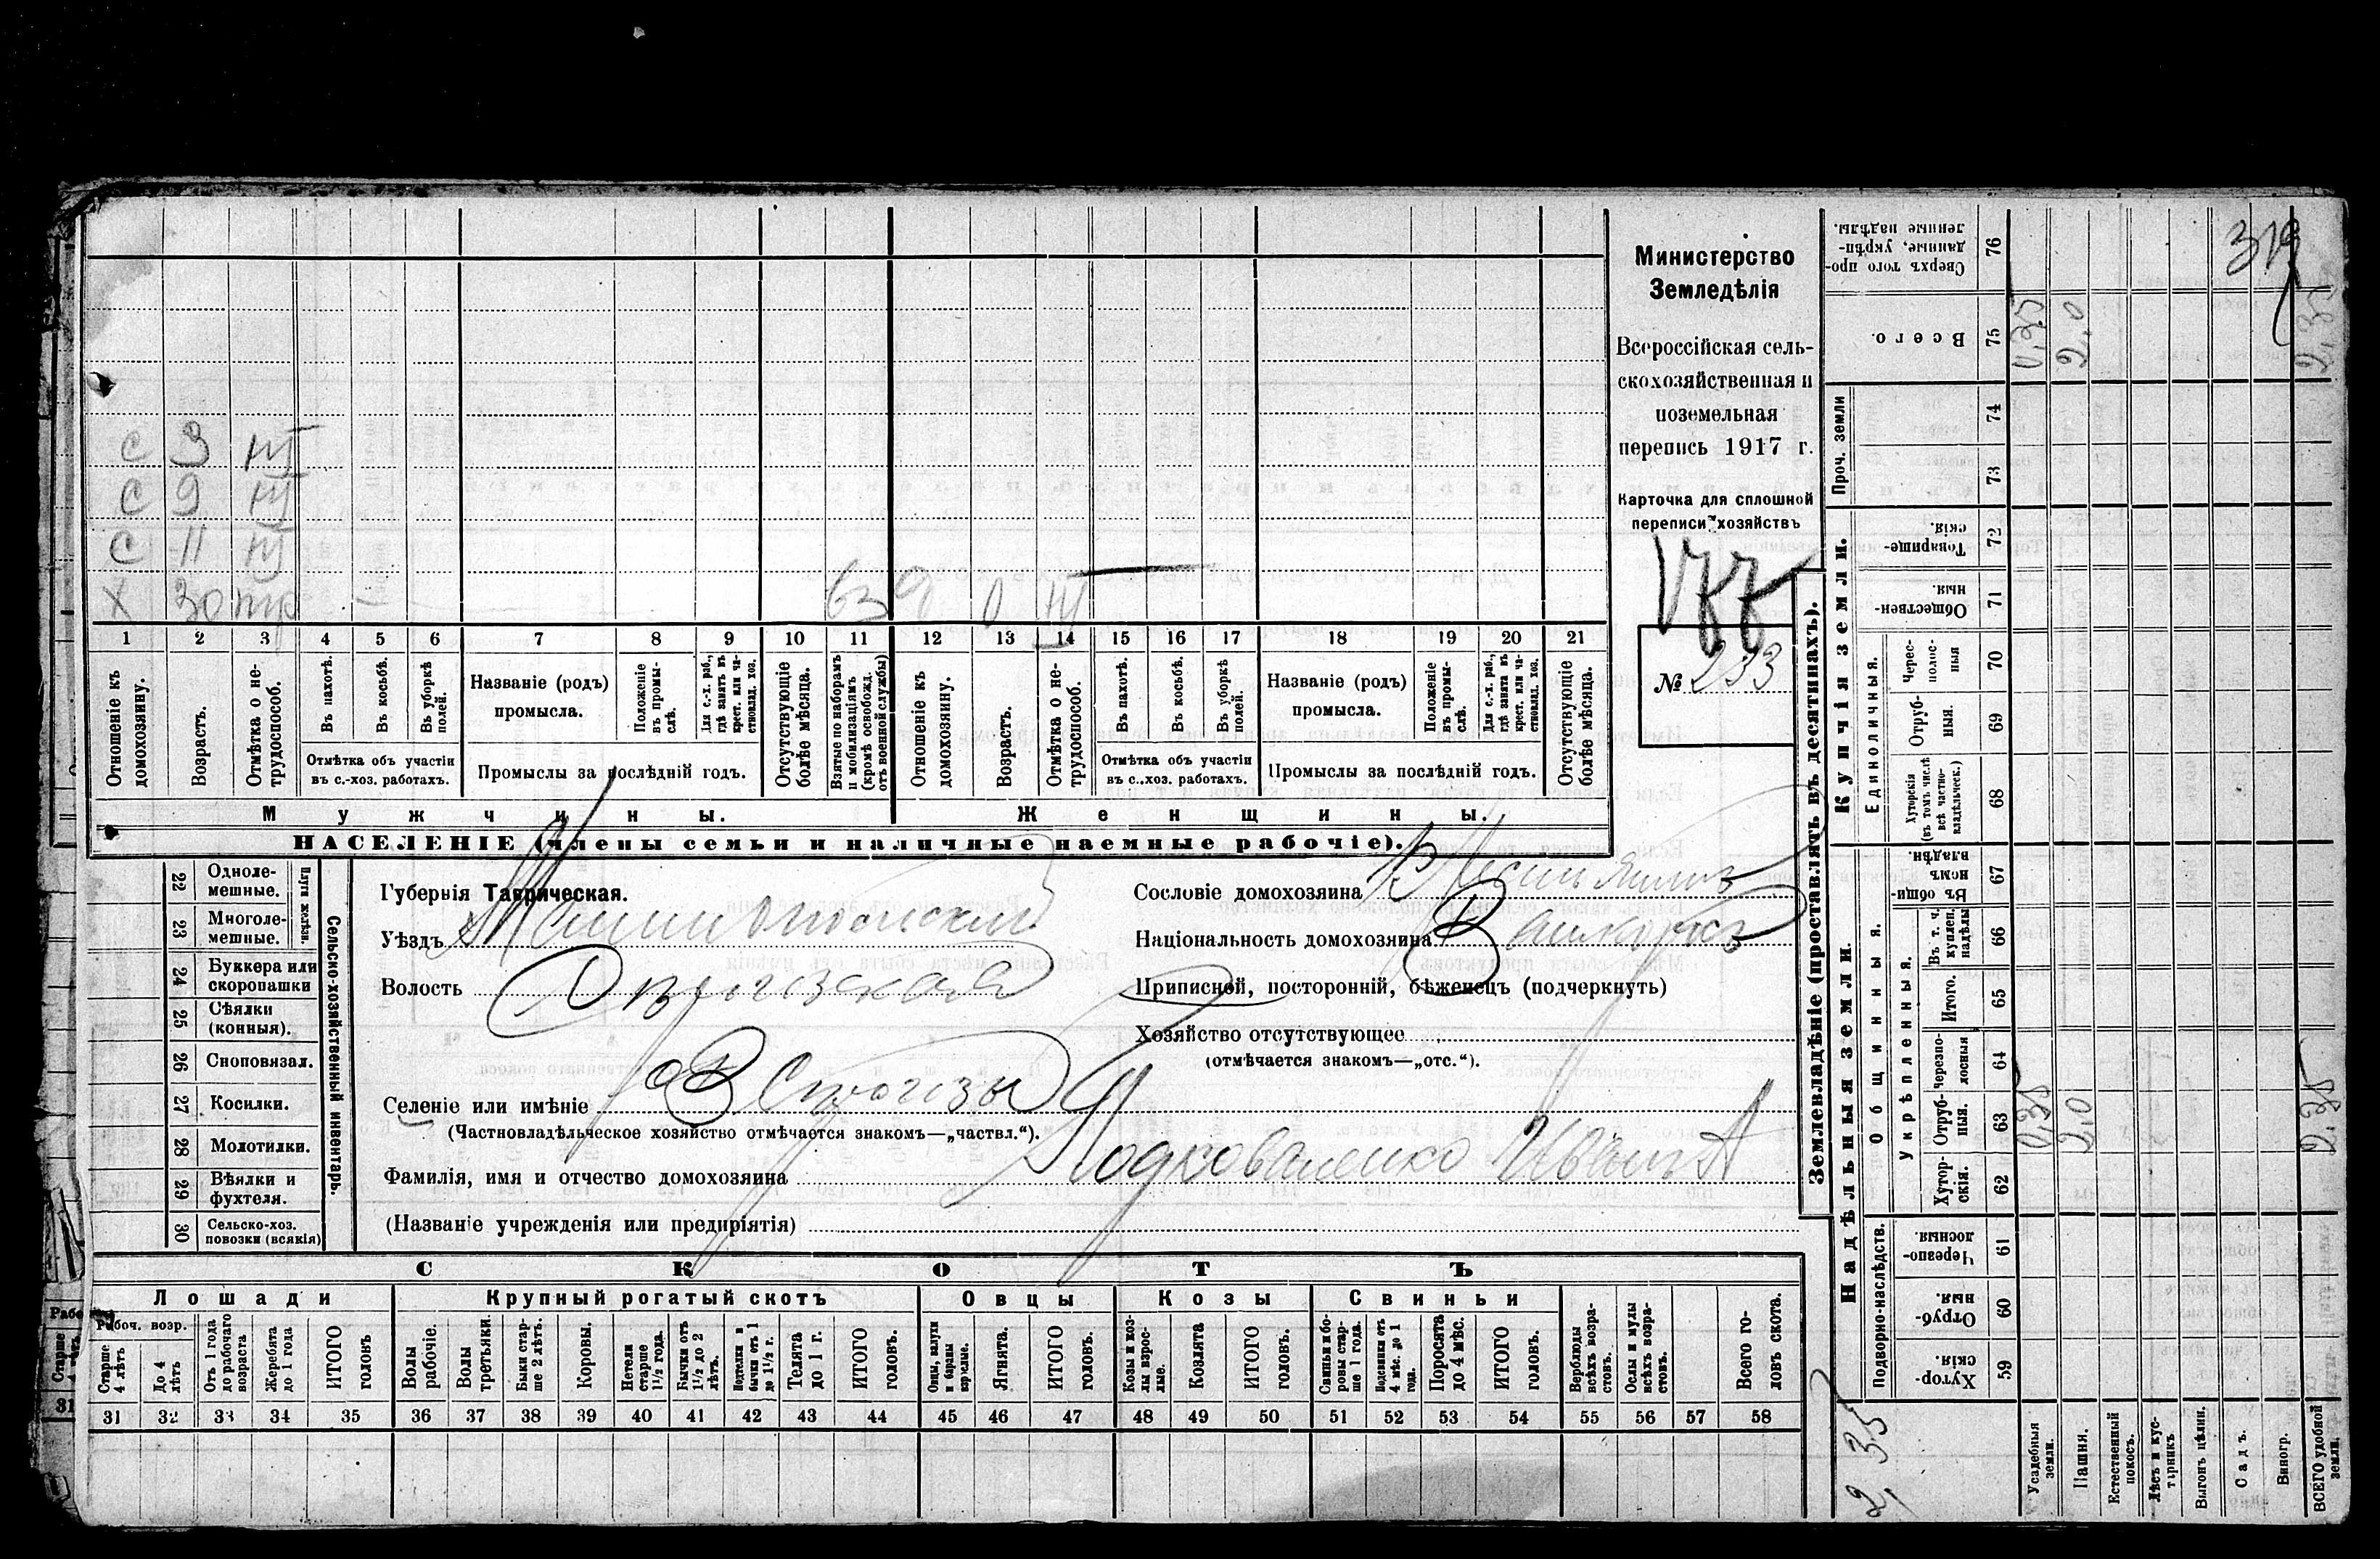 319
С 3 нт
С 9 нт
С 11 нт
Х 30 тр
1 2 3 4 5 6 7 8 9 10 11 12 13 14 15 16 17 18 19 20 21
Отношеніе къ домохозяину.
Возрастъ.
Отмѣтка о не-трудоспособ.
Въ пахотѣ.
Въ косьбѣ.
Въ уборкѣ полей.
Отмѣтка объ участіи въ с.-хоз. работахъ.
Названіе (родъ) промысла.
Положеніе въ промы-слѣ.
Для с.-х. раб., гдѣ занятъ въ крест. или ча-стновлад. хоз.
Промыслы за послѣдній годъ.
Отсутствующіе болѣе мѣсяца.
Взятые по наборамъ и мобилизаціямъ (кромѣ освобожд. отъ военной службы)
Отношеніе къ домохозяину.
Возрастъ.
Отмѣтка о не-трудоспособ.
Въ пахотѣ.
Въ косьбѣ.
Въ уборкѣ полей.
Отмѣтка объ участіи въ с.-хоз. работахъ.
Названіе (родъ) промысла.
Положеніе въ промы-слѣ.
Для с.-х. раб., гдѣ занята въ крест. или ча-стновлад. хоз.
Промыслы за послѣдній годъ.
Отсутствующіе болѣе мѣсяца.
Мужчины.
Женщины.
НАСЕЛЕНІЕ (члены семьи и наличные наемные рабочіе).
Министерство
Земледѣлія
Всероссійская сель-
скохозяйственная и
поземельная
перепись 1917 г.
Карточка для сплошной
переписи хозяйствъ
№ 233
22 Однолемешные.
23 Многолемешные.
Плуги желѣзн.
24 Буккера или скоропашки
25 Сѣялки (конныя).
26 Сноповязал.
27 Косилки.
28 Молотилки.
29 Вѣялки и фухтеля.
30 Сельско-хоз. повозки (всякія)
Сельско-хозяйственный инвентарь.
Губернія Таврическая.
Уѣздъ
Волость
Селеніе или имѣніе
(Частновладѣльческое хозяйство отмѣчается знакомъ—„частвл.“).
Фамилія, имя и отчество домохозяина Подковаленко Иванъ А
(Названіе учрежденія или предпріятія)
Сословіе домохозяина
Національность домохозяина
Приписной, посторонній, бѣженецъ (подчеркнуть)
Хозяйство отсутствующее
(отмѣчается знакомъ—„отс.“).
СКОТЪ
Лошади
Крупный рогатый скотъ
Овцы
Козы
Свиньи
Рабоч. возр.
Старше 4 лѣтъ
До 4 лѣтъ
Отъ 1 года до рабочаго возраста
Жеребята до 1 года
ИТОГО головъ
Волы рабочіе.
Волы третьяки.
Быки стар-ше 2 лѣтъ.
Коровы.
Нетели старше 1½ года.
Бычки отъ 1½ до 2 лѣтъ.
Подтелки и бычки отъ 1 до 1½ г.
Телята до 1 г.
ИТОГО головъ.
Овцы, валухи и бараны взрослые.
Ягнята.
ИТОГО головъ.
Козы и коз-лы взрос-лые.
Козлята
ИТОГО головъ.
Свиньи и бо-ровы стар-ше 1 года.
Подсвинки отъ 4 мѣс. до 1 года.
Поросята до 4 мѣс.
ИТОГО головъ.
Верблюды всѣхъ возра-стовъ.
Ослы и мулы всѣхъ возра-стовъ.
Всего го-ловъ скота.
31 32 33 34 35 36 37 38 39 40 41 42 43 44 45 46 47 48 49 50 51 52 53 54 55 56 57 58
Землевладѣніе (проставлять въ десятинахъ).
Надѣльныя земли.
Купчія земли.
Проч. земли
Подворно-наслѣдств.
Общинныя.
Укрѣпленныя.
Единоличныя.
Сверхъ того про-данные, укрѣп-ленные надѣлы. 76
Всего. 75 0,35 2,0 2,35
74
73
Товарище-скія. 72
Обществен-ныя. 71
Черес-полос-ныя 70
Отруб-ныя. 69
Хуторскія (въ томъ числѣ всѣ частно-владѣльческ.) 68
Въ общи-номъ владѣн. 67
Въ т. ч. куплен. надѣлы 66
Итого. 65
Черезпо-лосныя 64
Отруб-ныя. 63 0,35 2,0 2,35
Хутор-скія. 62
Черезпо-лосныя. 61
Отруб-ныя. 60
Хутор-скія. 59
2,35
Усадебныя земли.
Пашня.
Естественный покосъ.
Лѣсъ и кус-тарникъ
Выгонъ цѣлин.
Садъ.
Виногр.
ВСЕГО удобной земли.